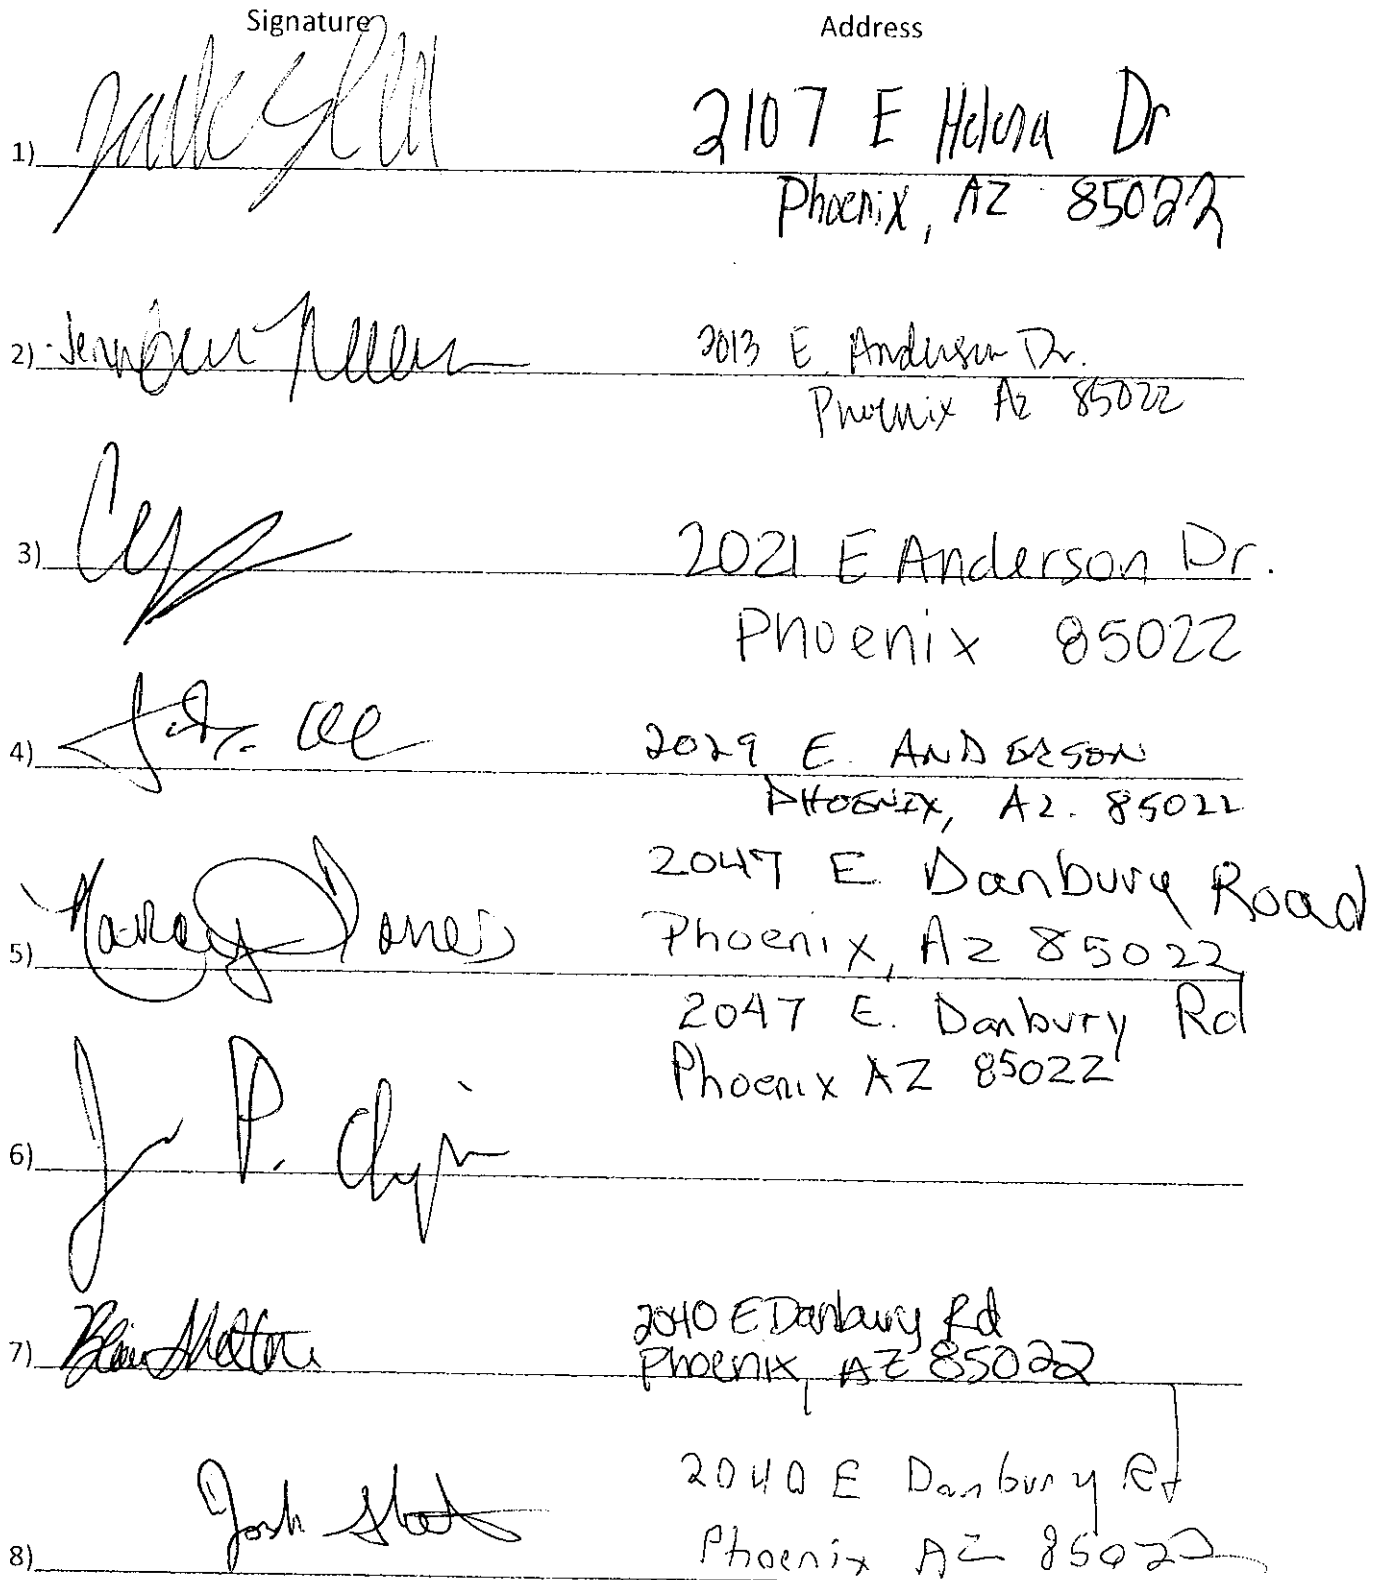 Signature Address
2107 E Helena Dr
1)
Phoenix, AZ 85022
2) Jennifer 2013 E. Anderson Dr.
Phoenix Az 85022
3) 2021 E Anderson Dr.
Phoenix 85022
4) 2029 E. ANDERSON
PHOENIX, AZ. 85022
2047 E. Danbury Road
5) Nancy Jones Phoenix, Az 85022
2047 E. Danbury Rd
Phoenix AZ 85022
6) P.
2040 E Danbury Rd
7) Phoenix, AZ 85022
2040 E Danbury Rd
8) Josh Phoenix AZ 85022